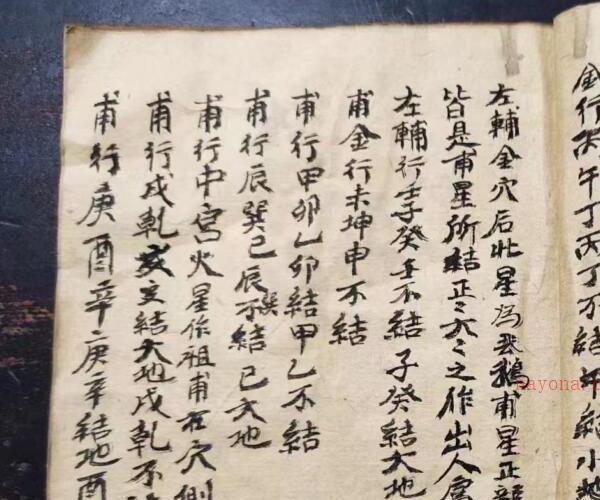 金行丙午丁丙丁不结午结小
左輔金穴后壯星為天鵝甫星正龍
皆是甫星所結正之大之之作出人富
左輔行壬子癸壬不結子癸結大地
甫金行未坤申不結
甫行甲卯乙卯結甲乙不結
甫行辰巽巳辰巽不結巳大地
甫行中宮火星作祖甫在穴側
甫行戌乾亥亥結大地戌乾不
甫行庚酉辛二庚辛結地酉
nayona